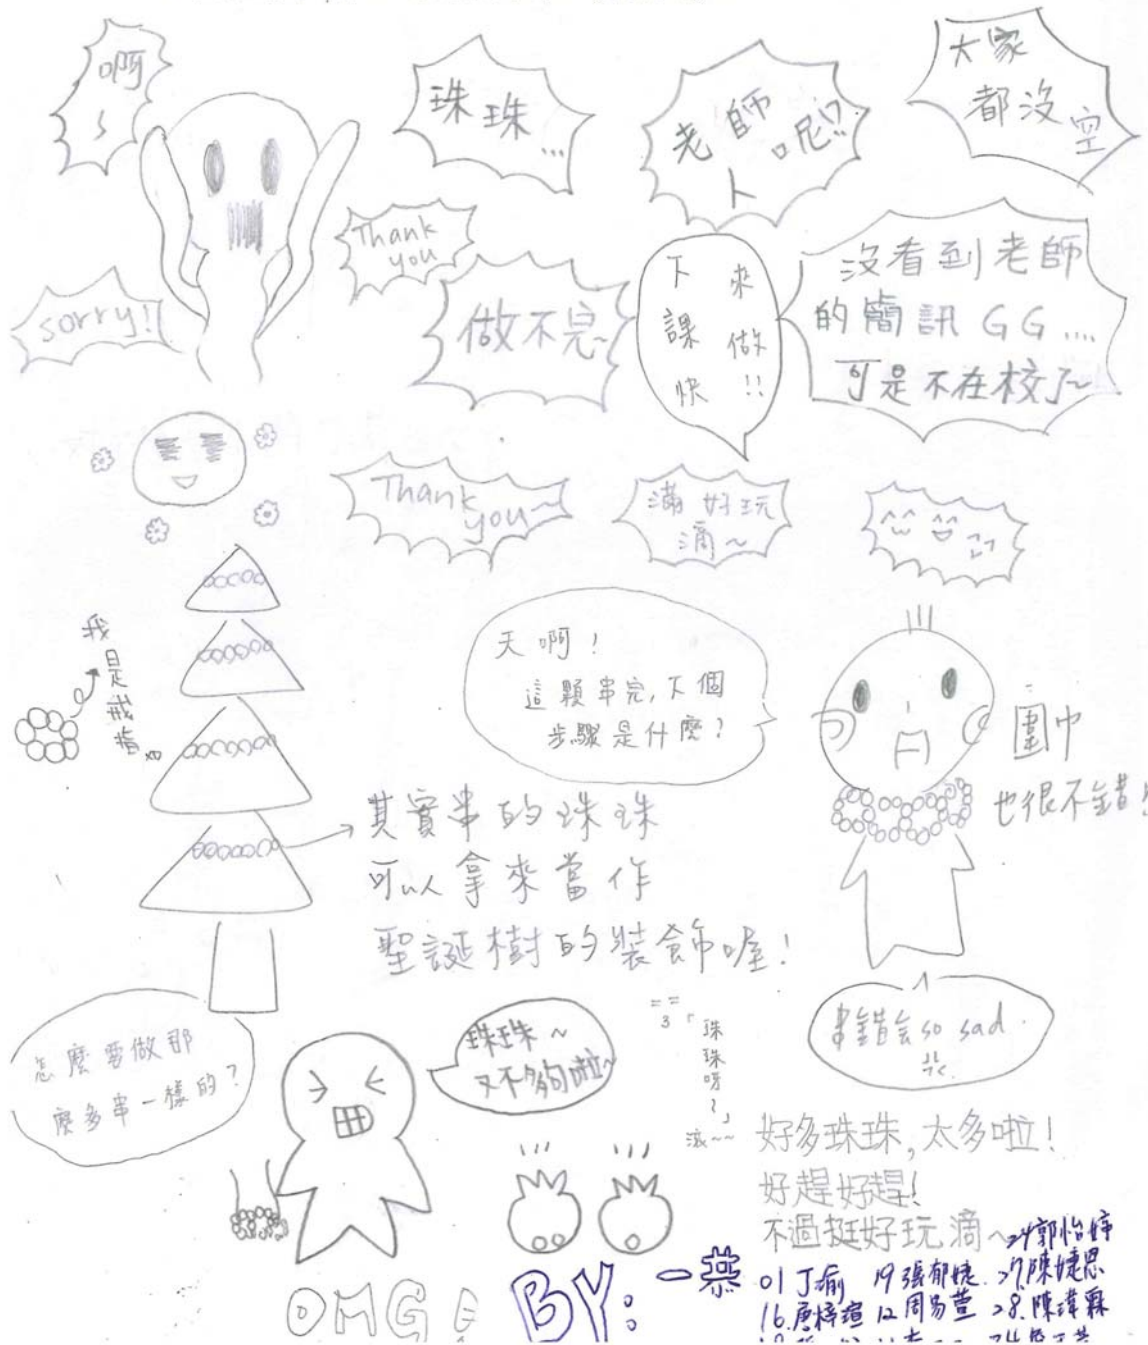 啊~
珠珠...
老師人呢!?
大家
都沒空
Thank
you
sorry!
做不完~
下課快
來做!!
沒看到老師
的簡訊GG....
可是不在校了~
Thank
you~
滿好玩
滴~
我是戒指
天啊!
這顆串完,下個
步驟是什麼?
圍巾
也很不錯!
其實串的珠珠
可以拿來當作
聖誕樹的裝飾喔!
怎麼要做那
麼多串一樣的?
珠珠~
又不夠啦~
「珠珠呀~」
滾~~
串錯会so sad.
好多珠珠,太多啦!
好趕好趕!
不過挺好玩滴~
OMG
BY:
一恭
24郭怡婷
01丁瑜 19張郁婕 27陳婕恩
16. 12周易萱 28.陳瑋霖